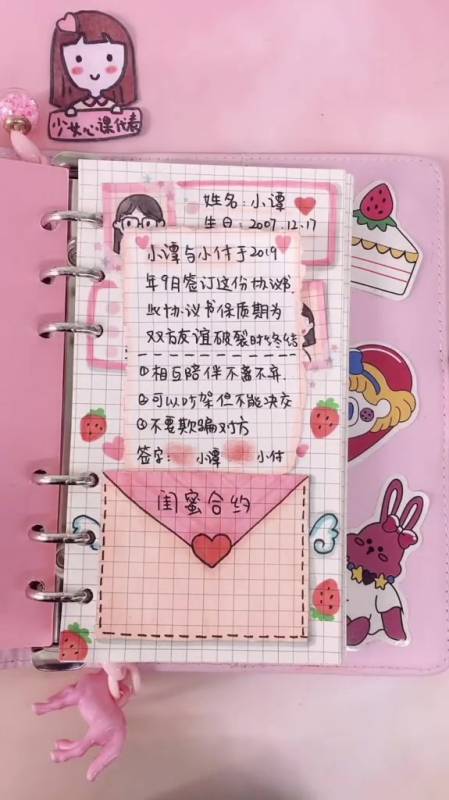 少女心课代表
姓名:小谭
生日:2007.12.17
小谭与小付于2019
年9月签订这份协议书.
此协议书保质期为
双方友谊破裂时终结
①相互陪伴不离不弃.
②可以吵架但不能决交
③不要欺骗对方
签字: 小谭 小付
闺蜜合约